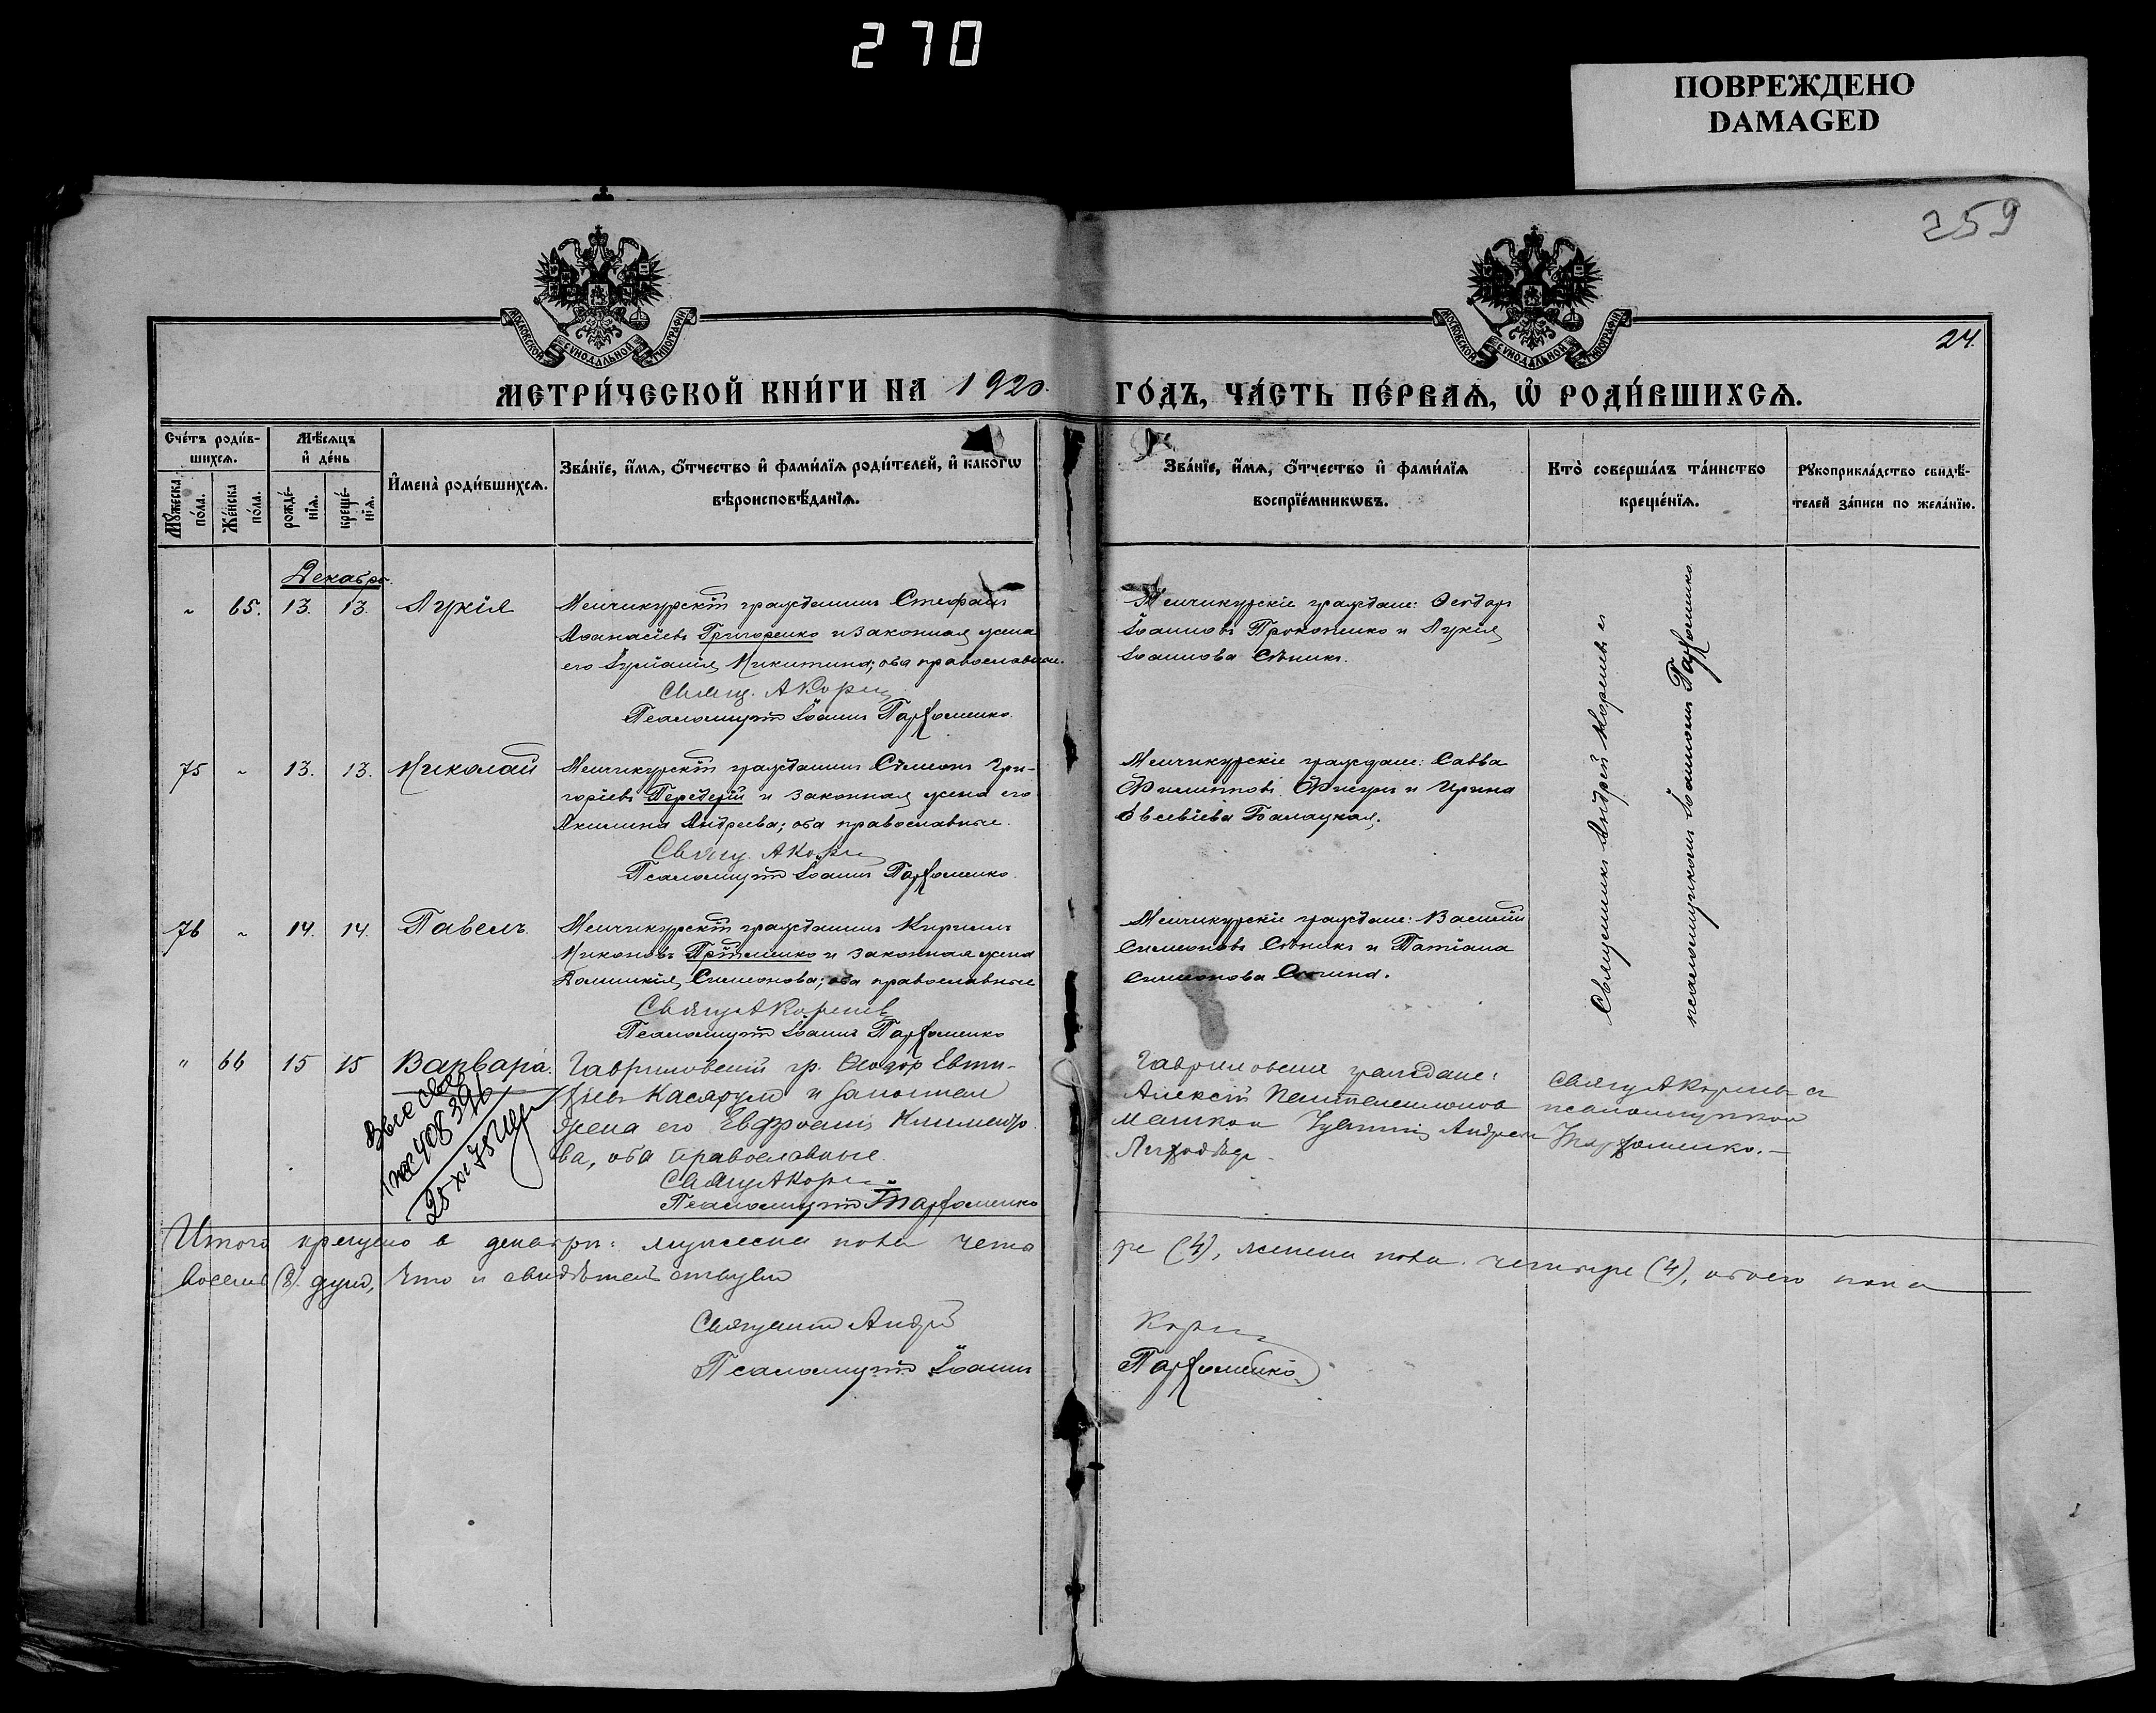 270
ПОВРЕЖДЕНО
DAMAGED
259
24.
МОСКОВСКОЙ СѴНОДАЛЬНОЙ ТИПОГРАФІИ
МОСКОВСКОЙ СѴНОДАЛЬНОЙ ТИПОГРАФІИ
МЕТРИ́ЧЕСКОЙ КНИ́ГИ НА 1920. ГО́ДЪ, ЧА́СТЬ ПЕ́РВАѦ, Ѡ҆ РОДИ́ВШИХСѦ.
Сче́тъ роди́в-
шихсѧ.
Мꙋ́жеска по́ла.
Же́нска по́ла.
Мѣ́сѧцъ
и҆ де́нь
рожде́-нїѧ.
креще́-нїѧ.
И҆мена̀ роди́вшихсѧ.
Зва́нїе, и҆́мѧ, ѻ҆́тчество и҆ фами́лїѧ роди́телей, и҆ како́гѡ
вѣроисповѣ́данїѧ.
Зва́нїе, и҆́мѧ, ѻ҆́тчество и҆ фами́лїѧ
воспрїе́мникѡвъ.
Кто̀ соверша́лъ та́инство
креще́нїѧ.
Рꙋкоприкла́дство свидѣ́-
телей за́писи по жела́нїю.
Декабрь.
" 65. 13. 13. Лукія
Менчикурскій гражданинъ Стефанъ
Аѳанасіевъ Григоренко и законная жена
его Іуліанія Никитина; оба православные.
Свящ. А Корнев
Псаломщикъ Іоаннъ Парфоменко.
Менчикурскіе граждане: Ѳеодоръ
Іоанновъ Прокопенко и Лукія
Іоаннова Сѣникъ.
Священникъ Андрей Корневъ съ
псаломщикомъ Іоанномъ Парфоменко.
75 " 13. 13. Николай
Менчикурскій гражданинъ Сѵмеонъ Гри-
горіевъ Передерій и законная жена его
Акилина Андреева; оба православные.
Свящ. А Корнев
Псаломщикъ Іоаннъ Парфоменко.
Менчикурскіе граждане: Савва
Филипповъ Фигуръ и Ирина
Евсевіева Балацкая.
76 " 14. 14. Павелъ.
Менчикурскій гражданинъ Кириллъ
Никоновъ и законная жена
Домникія Симеонова; оба православные
Свящ А Корнев
Псаломщикъ Іоаннъ Парфоменко
Менчикурскіе граждане: Василій
Симеоновъ Сѣникъ и Татіана
Симеонова
" 66 15 15 Варвара.
408396
25 XI 75
Гавриловскій гр. Ѳеодор Евти-
хіевъ и законная
жена его Евфросинія Клименто-
ва, оба православные.
Свящ А Корнев
Псаломщикъ І Парфоменко
Гавриловскіе граждане:
Алексій Пантелеимонов
и Андреева
Свящ А Корневъ съ
псаломщикомъ
І Парфоменко.
Итого крещено в декабрѣ: мужеска пола четы
ре (4), женска пола четыре (4), обоего пола
восемь (8) душъ, что и свидѣтельствуемъ
Священникъ Андрей Корнев
Псаломщикъ Іоаннъ Парфоменко.